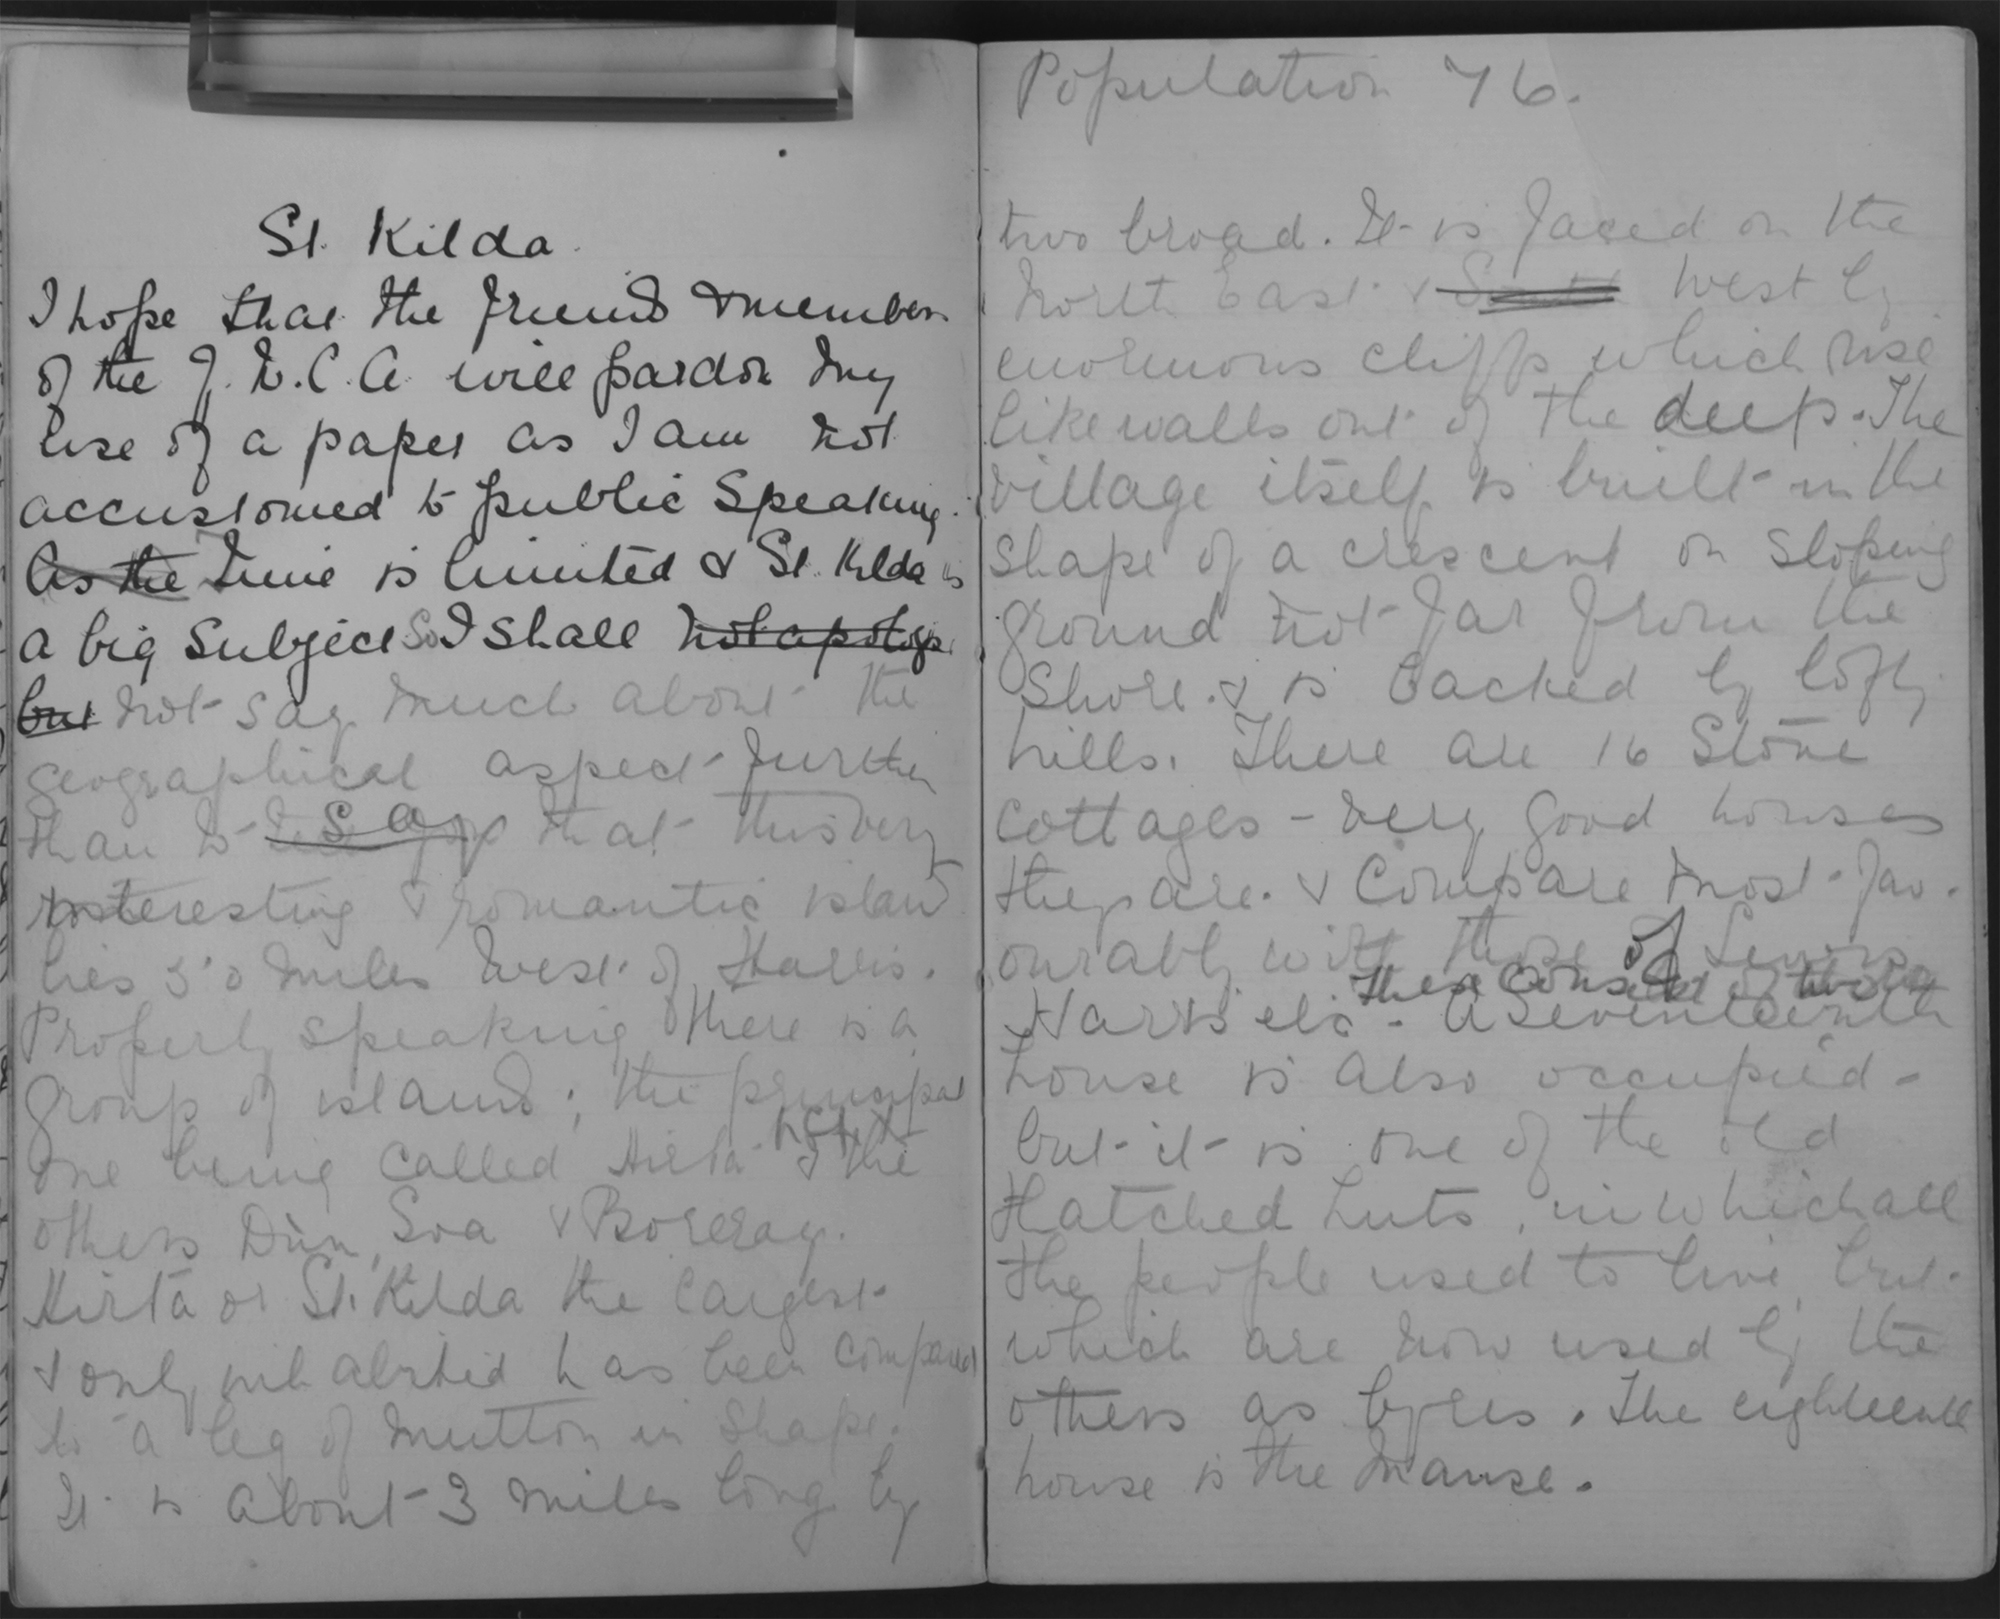 St. Kilda
I hope that the friends & members
of the Y. W. C. A will pardon my
use of a paper as I am not
accustomed to public Speaking.
As the Time is limited & St. Kilda is
a big Subject So I shall not apologise
but not say much about the
geographical aspect further
than to say that this very
interesting & romantic island
lies 50 miles West of Harris.
Properly speaking there is a
group of islands; the principal
one being called Hirta & the
others Dùn, Soa & Boreray.
Hirta or St. Kilda the largest
& only inhabited has been compared
to a leg of mutton in shape.
It is about 3 miles long by
Population 76.
two broad. It is faced on the
North East & South West by
enormous cliffs which rise
like walls out of the deep. The
village itself is built in the
shape of a crescent on sloping
ground not far from the
Shore. & is backed by lofty
hills. There are 16 Stone
cottages - very good houses
they are. & Compare most fav-
ourably with those of Lewis,
These consist of two
Harris etc. - A seventeenth
house is also occupied -
but it is one of the old
thatched huts, in which all
the people used to live, but
which are now used by the
others as byres. The eighteenth
house is the Manse.